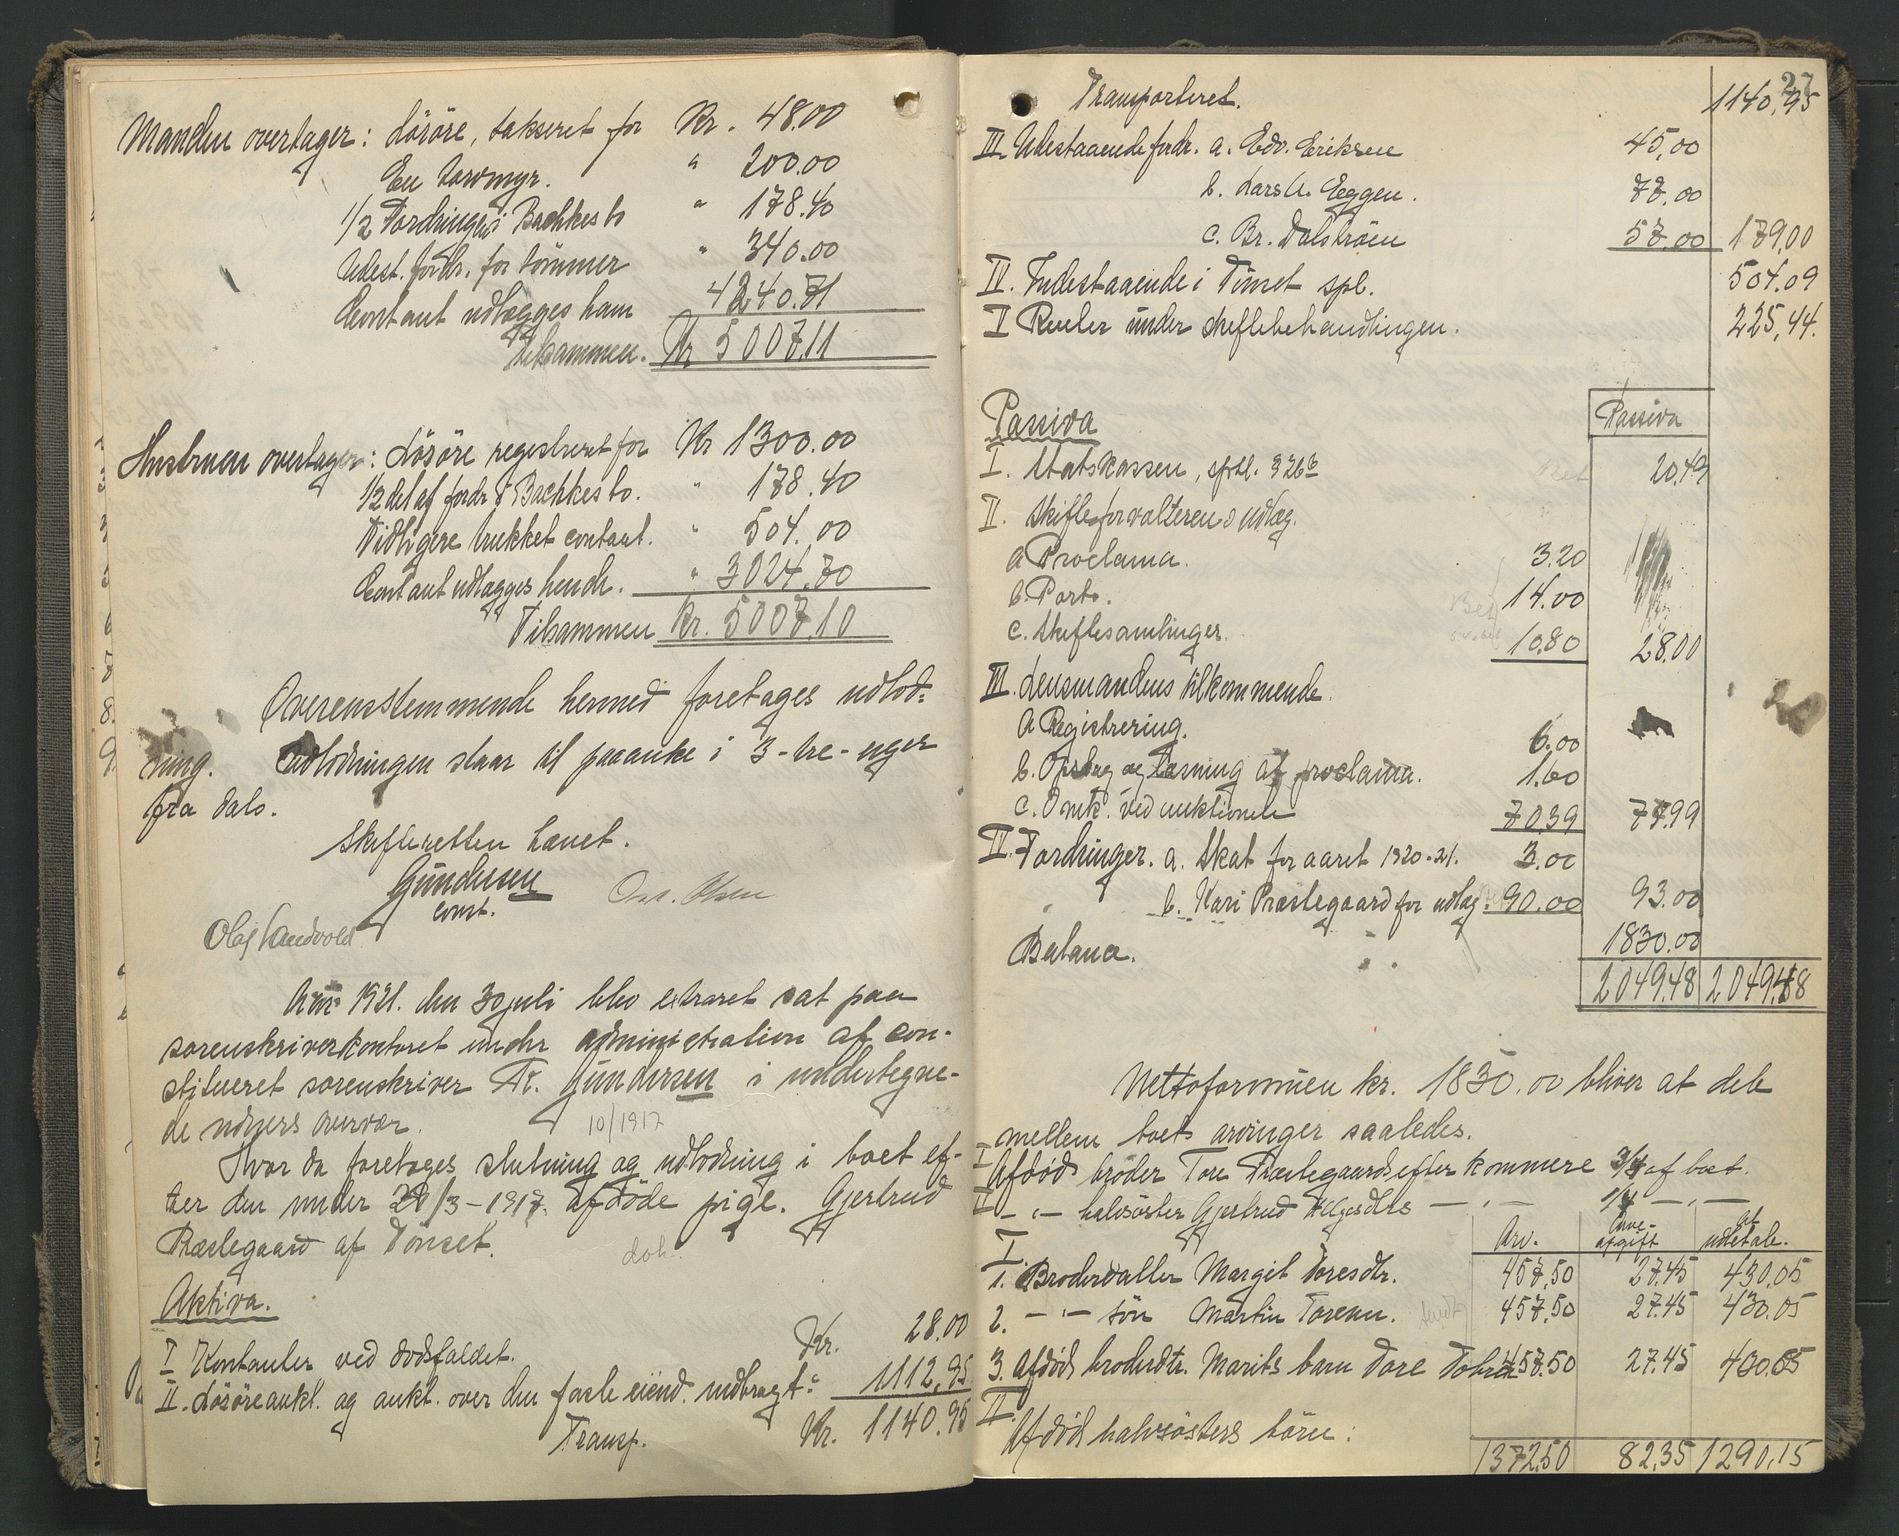 Manden overtager: Løsøre, takseret for Kr. 48.00
En torvmyr. " 200.00
1/2 Fordringen i Bachkes bo " 178.40
Udest. fordr. for tømmer " 340.00
Contant udlægges ham 4240.71
Tilsammen. Kr 5007.11
Hustruen overtager: Løsøre registreret for Kr 1300.00
1/2 del af fordr i Bachkes bo. " 178.40
Tidligere trukket contant. " 504.00
Contant udlægges hende. " 3024.70
Tilsammen Kr. 5007.10
Overensstemmende hermed foretages udlod-
ning. Udlodningen staar til paaanke i 3-tre-uger
fra dato.
Skifteretten hævet.
Gundersen
const.
Olsen
Olaf Sandvold
Aar 1921. den 30 juli blev extraret sat paa
sorenskriverkontoret under administration af con-
stitueret sorenskriver Fr. Gundersen i undertegne-
de vidners overvær. 10/1917
Hvor da foretages slutning og udlodning i boet ef-
ter den under 29/3-1917 afdøde pige. Gjertrud
Præstegaard af Tönset.
dok.
Aktiva.
I Kontanter ved dødsfaldet. Kr. 28.00
II. Løsøreaukt. og aukt. over den faste eiend. indbragt: 1112,95
Transp. Kr. 1140.95
27
Transporteret. 1140,95
III. Udestaaende fordr. a. Edv. Eriksen 45,00
b. Lars A. Eggen. 77.00
c. Br. Dalstrøm 57.00 179.00
IV. Indestaaende i Tönset spb. 504.09
V Renter under skiftebehandlingen. 225,44.
Passiva Passiva
I. Statskassen, sprtl. § 26 b 20.49
II. Skifteforvalterens udlæg.
a Proclama. 3.20
b. Porto. 14.00
c. Skiftesamlinger. 10.80 28.00
III. Lensmandens tilkommende.
a Registrering. 6.00
b. Opslag og læsning af proclama. 1.60
c. Omk. ved auktionen 70.39 77.99
IV. Fordringer. a. Skat for aaret 1920-21. 3.00
b. Kari Præstegaard for udlæg. 90.00 93.00
Balance. 1830.00
2049.48 2049.48
Nettoformuen kr. 1830.00 bliver at dele
mellem boets arvinger saaledes.
I Afdøds broder Tore Præstegaards efterkommere 3/4 af boet.
II — " — halvsøster Gjertrud Helgesdtr — " — 1/4 — " —
Arv. Arve-afgift At udbetale.
I
1. Broderdatter Margit Toresdtr. 457,50 27.45 430.05
2. — " — søn Martin Toresen. 457,50 27.45 430.05
3. Afdød broderdtr. Marits barn Tore 457.50 27.45 430.05
II.
Afdøds halvsøsters børn:
1372.50 82,35 1290,15